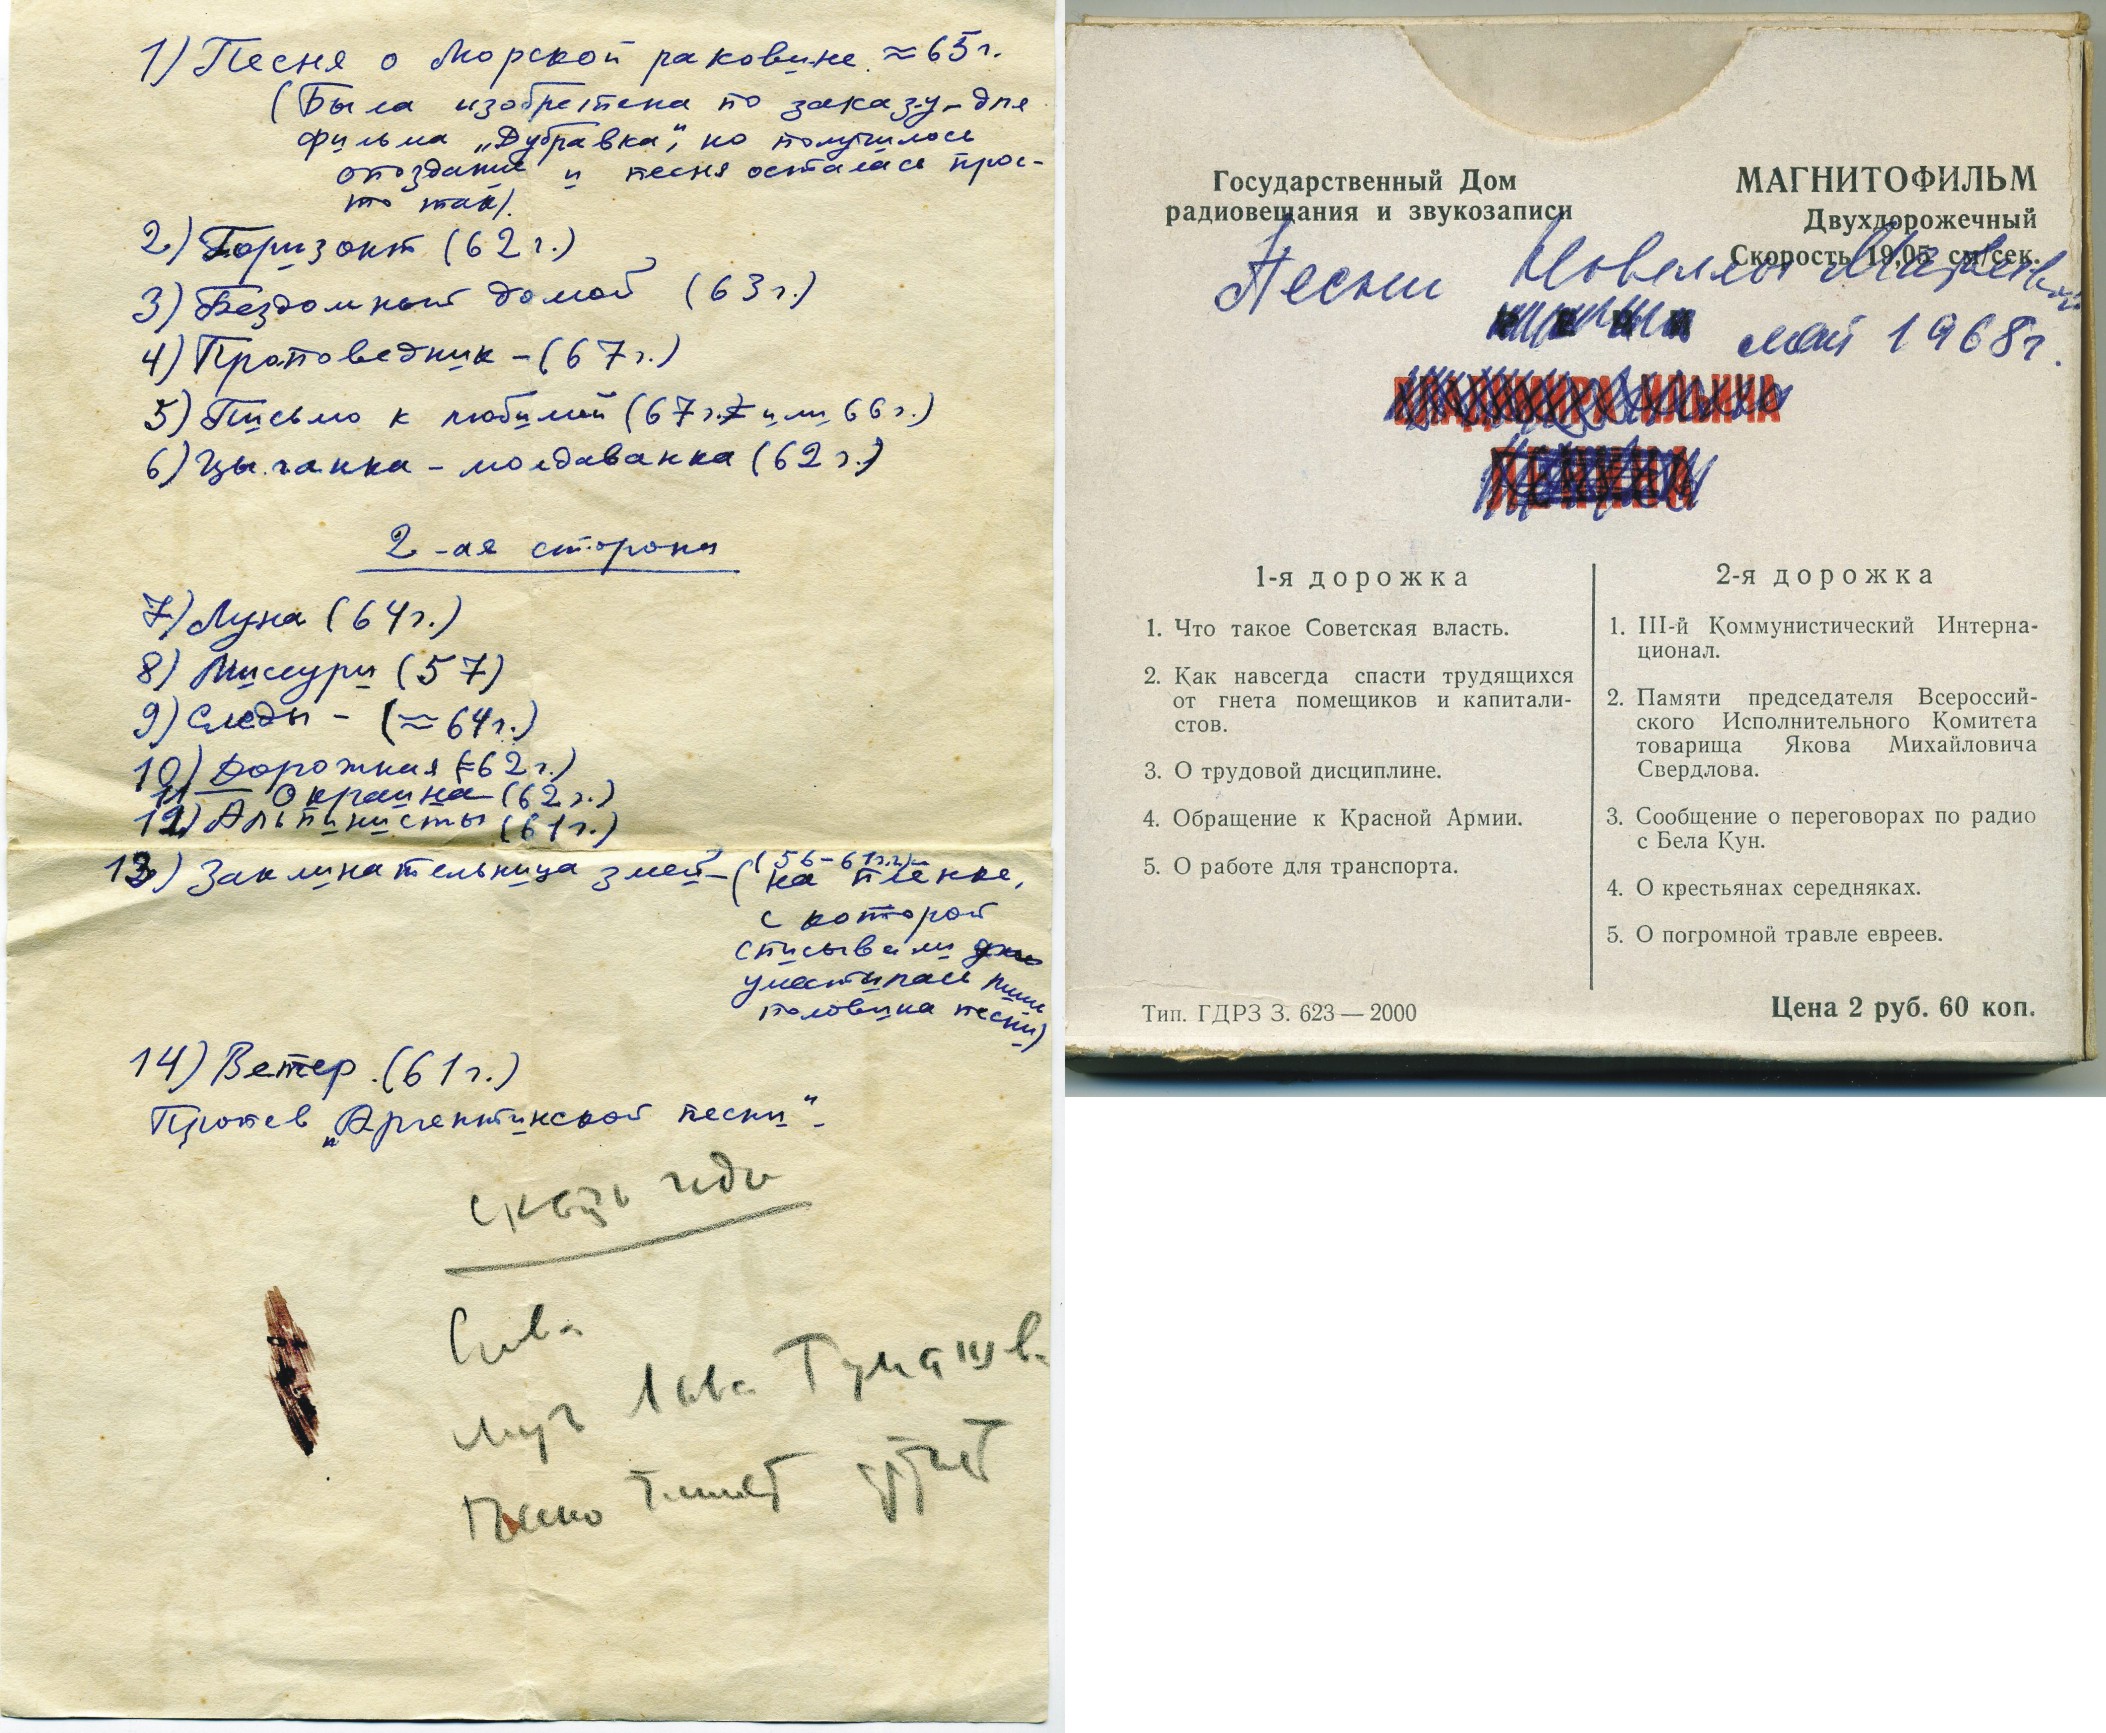 1) Песня о Морской раковине. ≈65г.
(Была изобретена по заказу – для
фильма „Дубравка“, но получилось
опоздание и песня осталась прос-
то так).
2) Горизонт (62г.)
3) Бездомный домой (63г.)
4) Проповедник – (67г.)
5) Письмо к любимой (67г. или 66г.)
6) Цыганка – молдаванка (62г.)
2-ая сторона
7) Луна (64г.)
8) Миссури (57)
9) Следы – (≈64г.)
10) Дорожная (≈62г.)
11) Окраина – (62г.)
12) Альпинисты (61г.)
13) Заклинательница змей – (56–61г.г.)
(на плёнке,
с которой
списывали
уместилась лишь
половина песни)
14) Ветер. (61г.)
Против „Аргентинской песни“.
сквозь годы
Слова
муз Льва
Государственный Дом
радиовещания и звукозаписи
МАГНИТОФИЛЬМ
Двухдорожечный
Скорость 19,05 см/сек.
Песни Новеллы Матвеевой
май 1968г.
1-я дорожка
1. Что такое Советская власть.
2. Как навсегда спасти трудящихся
от гнета помещиков и капитали-
стов.
3. О трудовой дисциплине.
4. Обращение к Красной Армии.
5. О работе для транспорта.
2-я дорожка
1. III-й Коммунистический Интерна-
ционал.
2. Памяти председателя Всероссий-
ского Исполнительного Комитета
товарища Якова Михайловича
Свердлова.
3. Сообщение о переговорах по радио
с Бела Кун.
4. О крестьянах середняках.
5. О погромной травле евреев.
Тип. ГДРЗ З. 623—2000
Цена 2 руб. 60 коп.